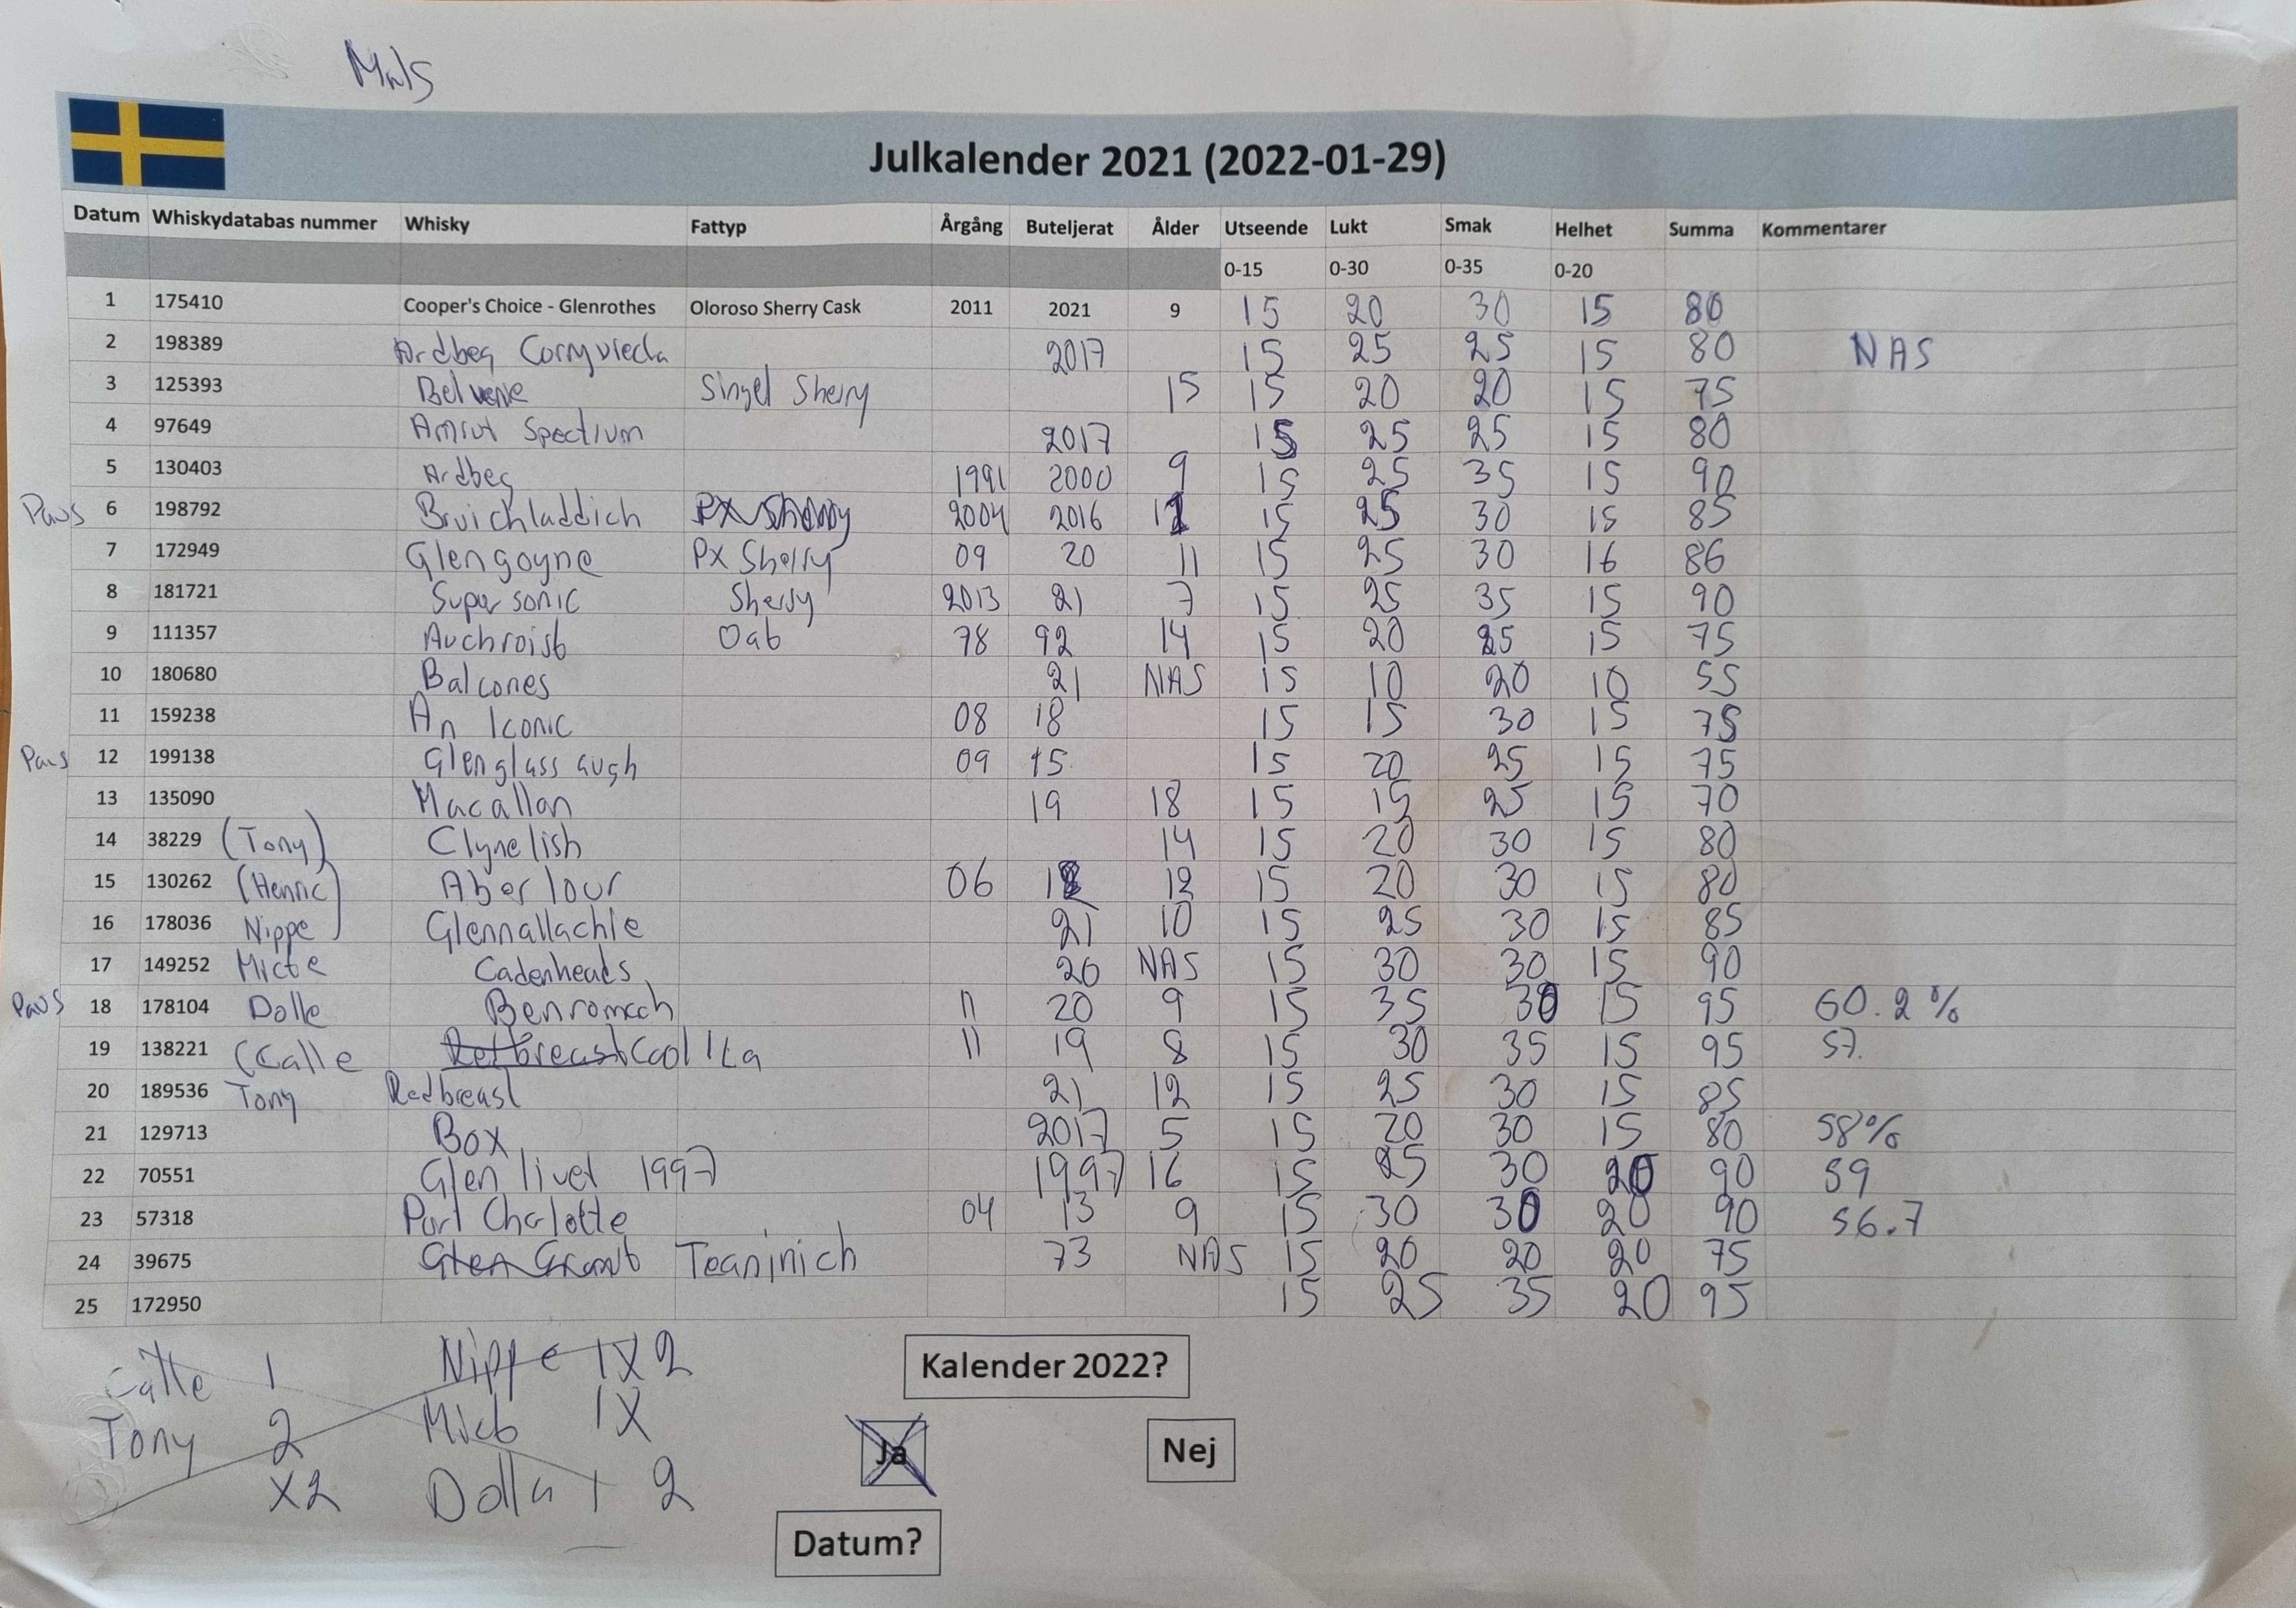 Mats
Julkalender 2021 (2022-01-29)
Datum Whiskydatabas nummer Whisky Fattyp Årgång Buteljerat Ålder Utseende Lukt Smak Helhet Summa Kommentarer
0-15 0-30 0-35 0-20
1 175410 Cooper's Choice - Glenrothes Oloroso Sherry Cask 2011 2021 9 15 20 30 15 80
2 198389 Ardbeg Corryvrecka 2017 15 25 25 15 80 NAS
3 125393 Belvenie Singel Sherry 15 15 20 20 15 75
4 97649 Amrut Spectrum 2017 15 25 25 15 80
5 130403 Ardbeg 1991 2000 9 15 25 35 15 90
Paus 6 198792 Bruichladdich 2004 2016 12 15 25 30 15 85
7 172949 Glengoyne PX Sherry 09 20 11 15 25 30 16 86
8 181721 Super sonic Sherry 2013 21 7 15 25 35 15 90
9 111357 Auchroisk Oak 78 92 14 15 20 25 15 75
10 180680 Balcones 21 NAS 15 10 20 10 55
11 159238 An Iconic 08 18 15 15 30 15 75
Paus 12 199138 Glenglassaugh 09 15 15 20 25 15 75
13 135090 Macallan 19 18 15 15 25 15 70
14 38229 (Tony) Clynelish 14 15 20 30 15 80
15 130262 (Henric) Aberlour 06 12 15 20 30 15 80
16 178036 Nippe Glennallachie 21 10 15 25 30 15 85
17 149252 Micke Cadenheads 20 NAS 15 30 30 15 90
Paus 18 178104 Dolle Benromach 11 20 9 15 35 30 15 95 60.2%
19 138221 (Calle Redbreast Caol Ila 11 19 8 15 30 35 15 95 57.
20 189536 Tony Redbreast 21 12 15 25 30 15 85
21 129713 Box 2017 5 15 20 30 15 80 58%
22 70551 Glen livet 1997 1997 16 15 25 30 20 90 59
23 57318 Port Chalotte 04 13 9 15 30 30 20 90 56.7
24 39675 Glen Grant Teaninich 73 NAS 15 20 20 20 75
25 172950 15 25 35 20 95
Calle 1 Nippe 1X2
Tony 2 Mick 1X
X2 Dolla 1 2
Kalender 2022?
Ja Nej
Datum?